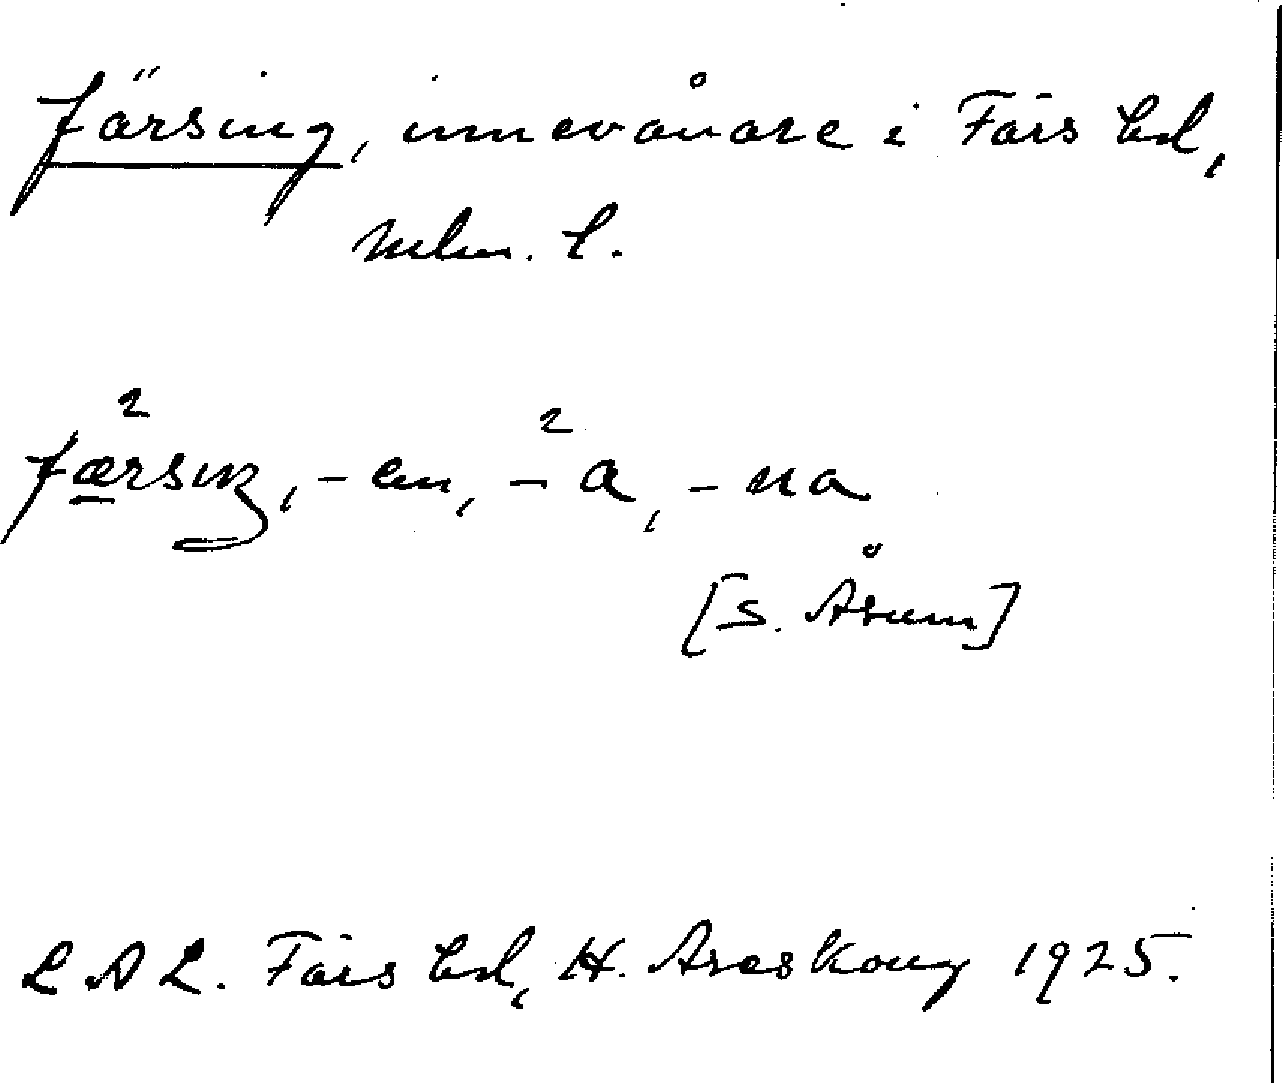 färsing, innevånare i Färs hd,
Mlm. l.
fæ²rsiŋ, -en, -²a, -na
[S. Åsum]
LAL. Färs hd, H. Areskoug 1925.